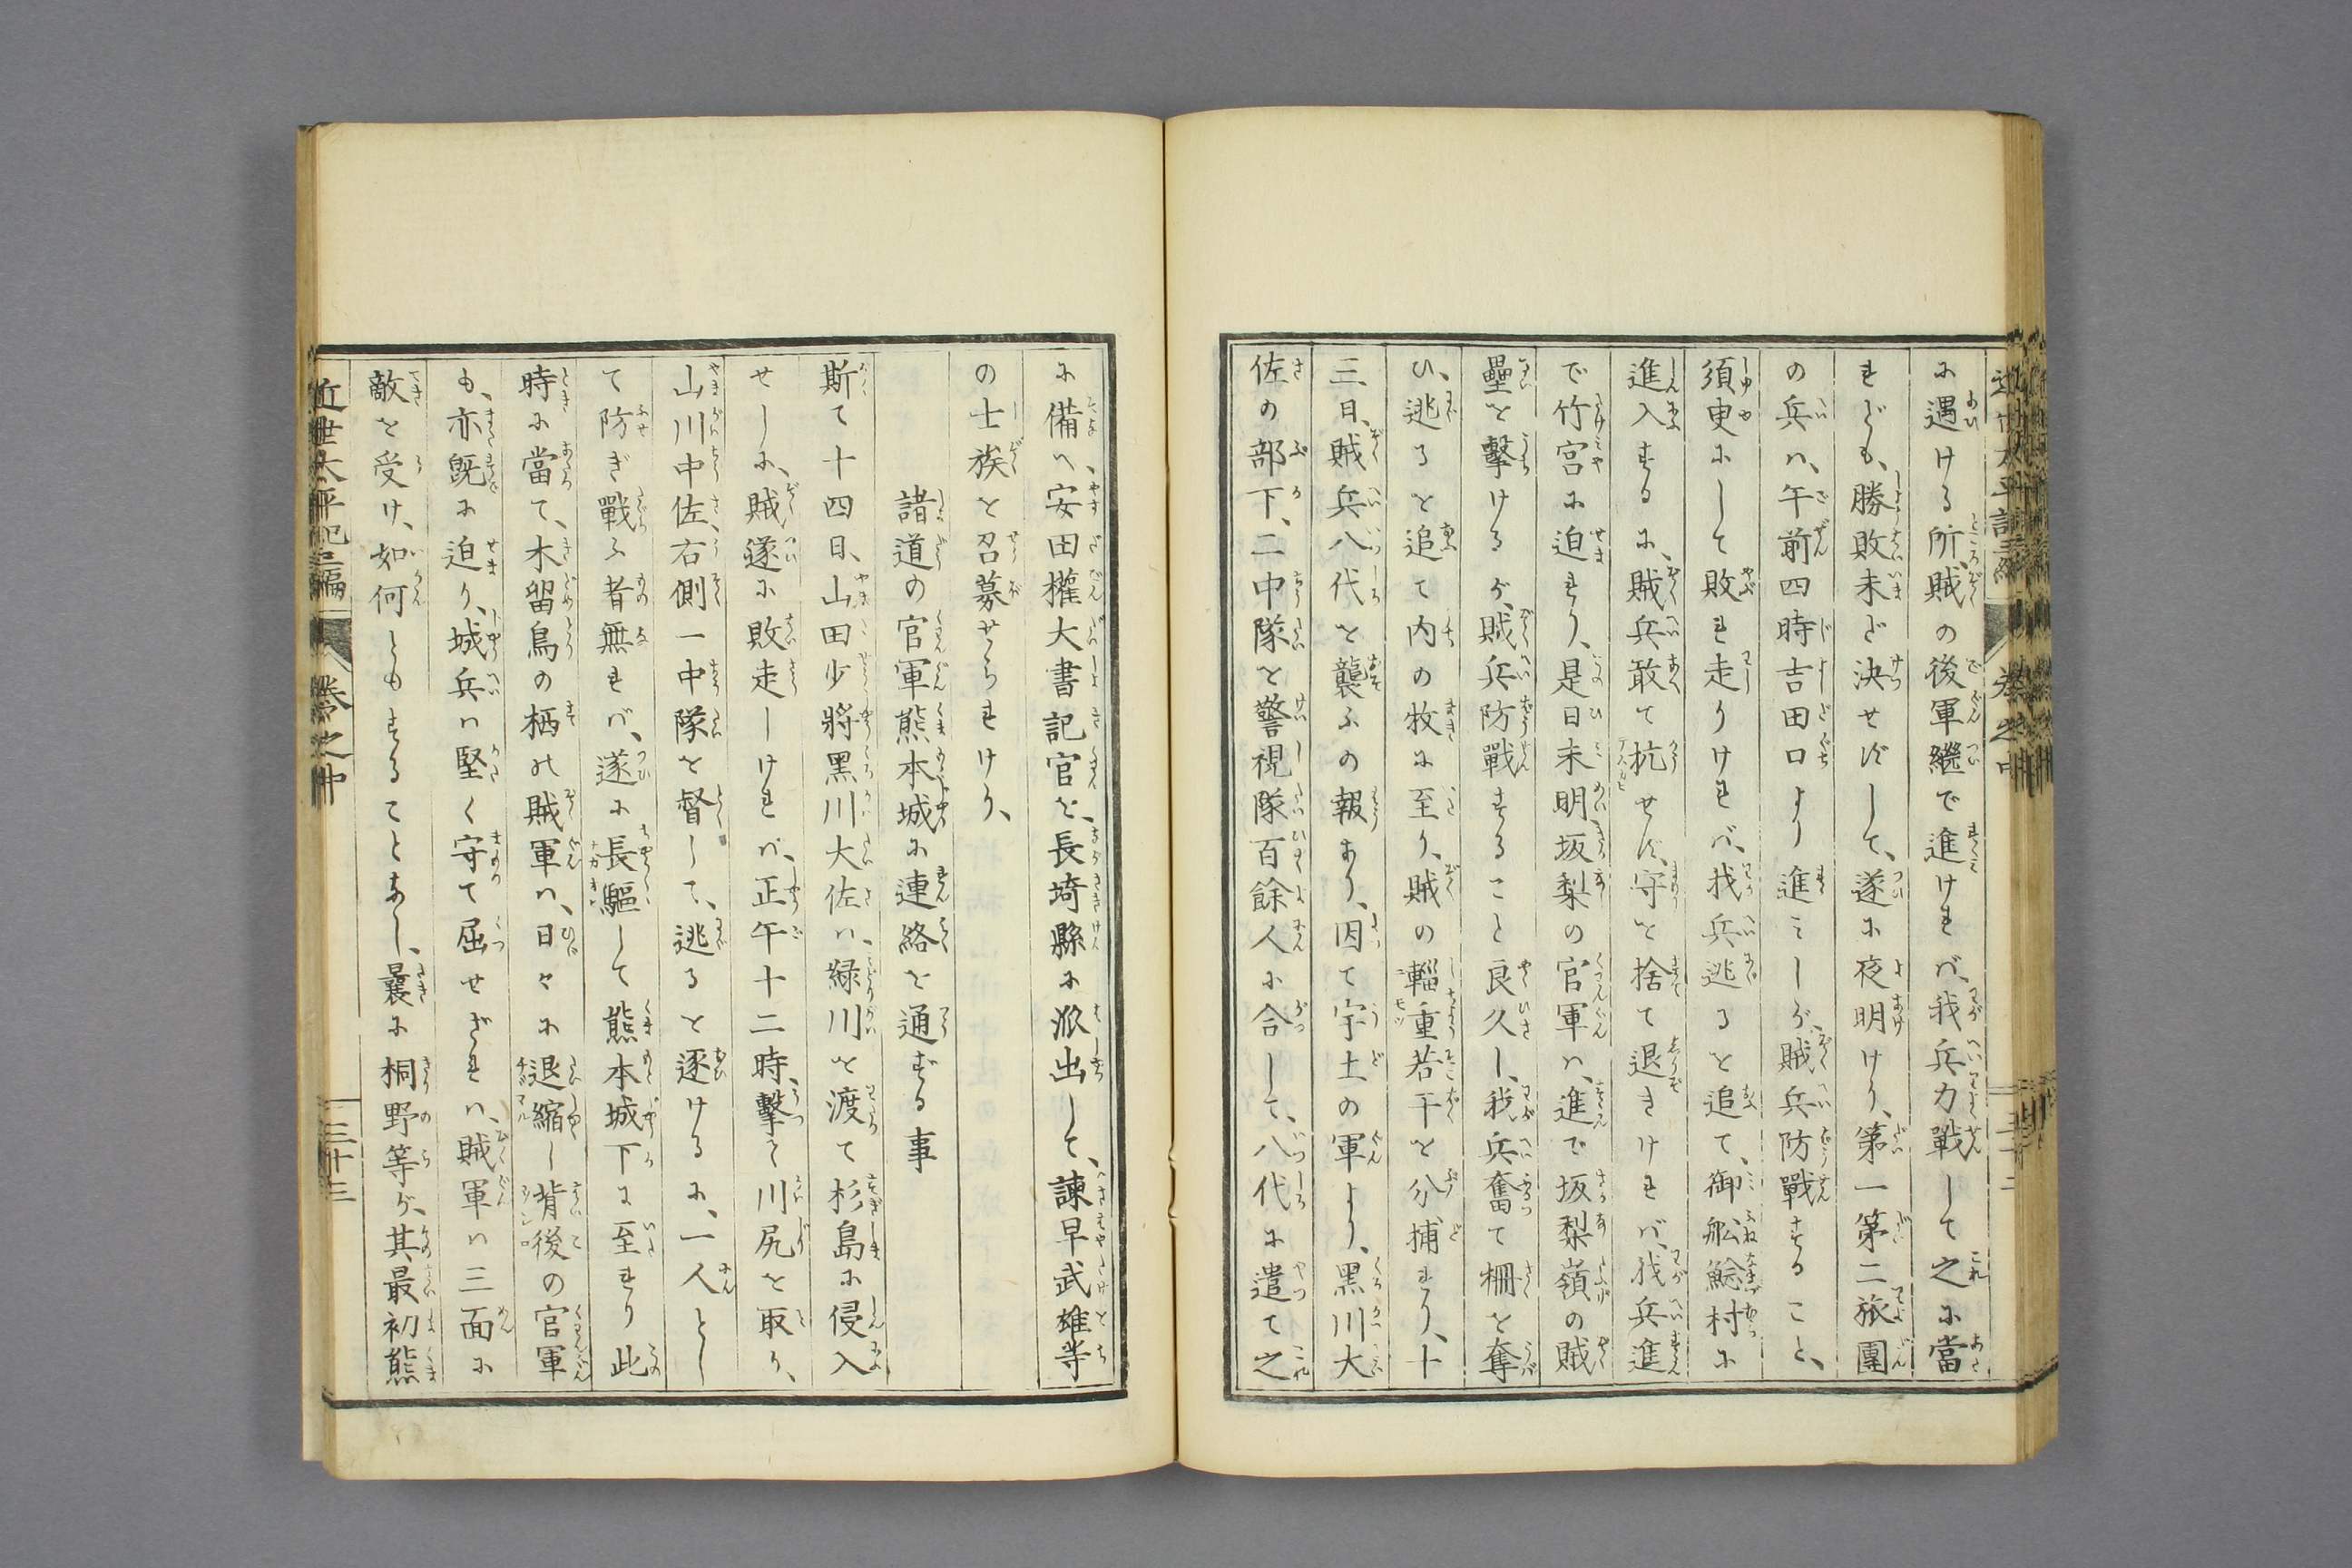 に遇ける所、賊の後軍繼で進けれバ、我兵力戰して之に當
れども、勝敗未ざ決せずして、遂に夜明けり、第一第二旅團
の兵ハ、午前四時吉田口より進ミしが、賊兵防戰すること、
須臾にして敗れ走りけれバ、我兵逃るを追て、御舩鯰村に
進入するに、賊兵敢て抗せず、守を捨て退きけれバ、我兵進
で竹宮に迫れり、是日未明坂梨の官軍ハ、進で坂梨嶺の賊
壘を擊けるが、賊兵防戰すること良久し、我兵奮て柵を奪
ひ、逃るを追て内の牧に至り、賊の輜重若干を分捕せり、十
三日、賊兵八代を襲ふの報あり、因て宇土の軍より、黒川大
佐の部下、二中隊を警視隊百餘人に合して、八代に遣て之
に備へ、安田權大書記官を、長埼縣に派出して、諫早武雄等
の士族を召募せられけり、
諸道の官軍熊本城に連絡を通ずる事
斯て十四日、山田少將黒川大佐ハ、緑川を渡て杉島に侵入
せしに、賊遂に敗走しけれバ、正午十二時、擊て川尻を取り、
山川中佐、右側一中隊を督して、逃るを逐けるに、一人とし
て防ぎ戰ふ者無れバ、遂に長驅して熊本城下に至れり此
時に當て、木留鳥の栖の賊軍ハ、日々に退縮し背後の官軍
も、亦既に迫り、城兵ハ堅く守て屈せざれハ、賊軍ハ三面に
敵を受け、如何ともすることあし、曩に桐野等が、其最初熊
近世太平記三編
卷之中
三十三